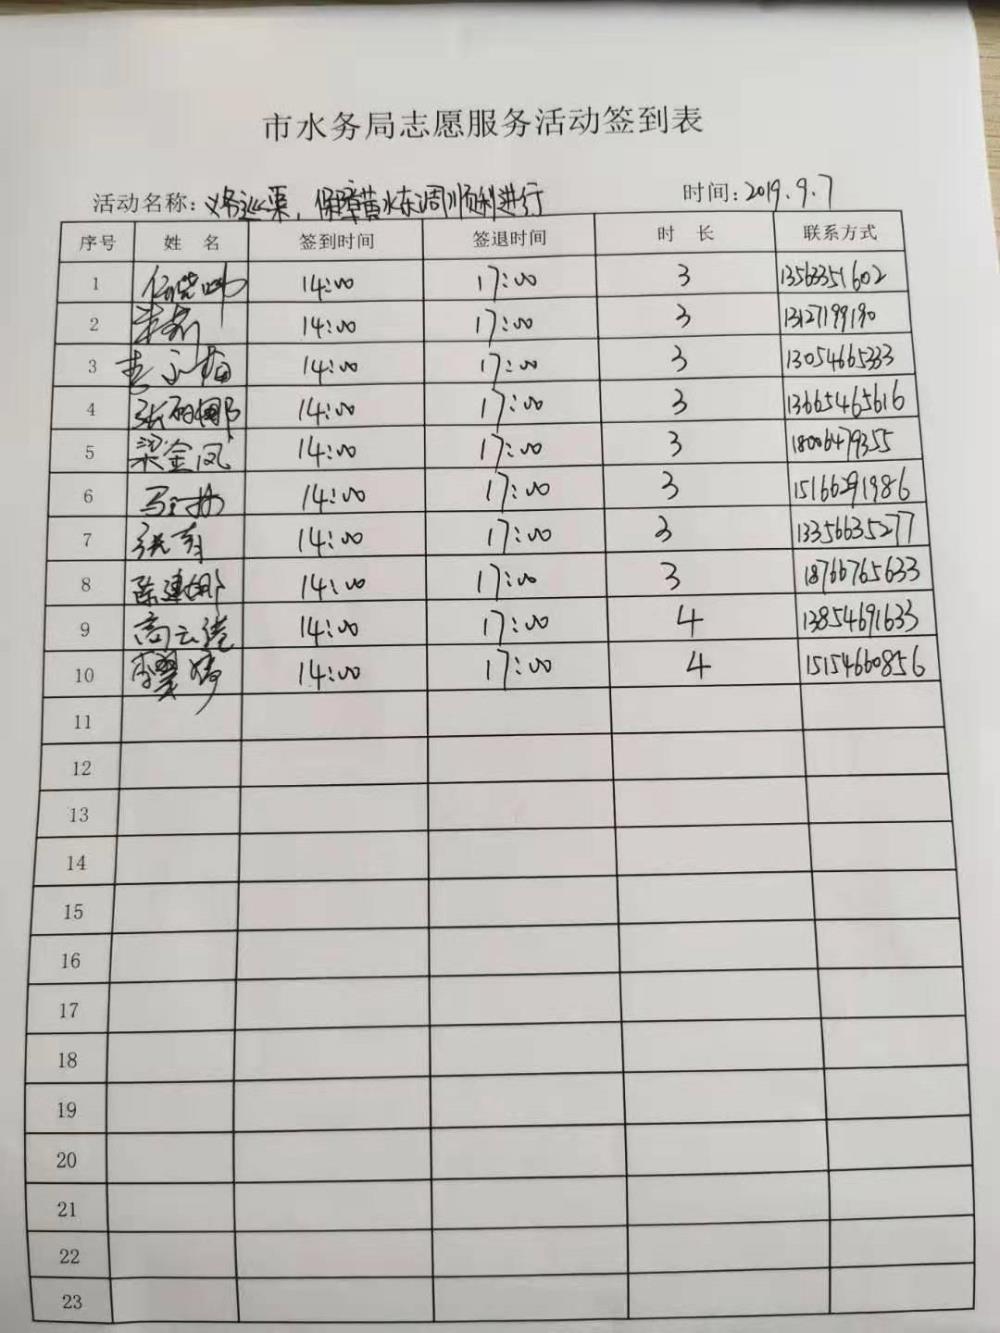 市水务局志愿服务活动签到表
活动名称：义务巡渠，保障黄水东调顺利进行 时间：2019.9.7
序号 姓名 签到时间 签退时间 时长 联系方式
1 14:00 17:00 3 13563351602
2 14:00 17:00 3 13127199190
3 14:00 17:00 3 13054665333
4 14:00 17:00 3 13665465616
5 梁金凤 14:00 17:00 3 18006479355
6 14:00 17:00 3 15166291986
7 14:00 17:00 3 13356635277
8 陈建娜 14:00 17:00 3 18766765633
9 高云 14:00 17:00 4 13854691633
10 14:00 17:00 4 15154660856
11
12
13
14
15
16
17
18
19
20
21
22
23